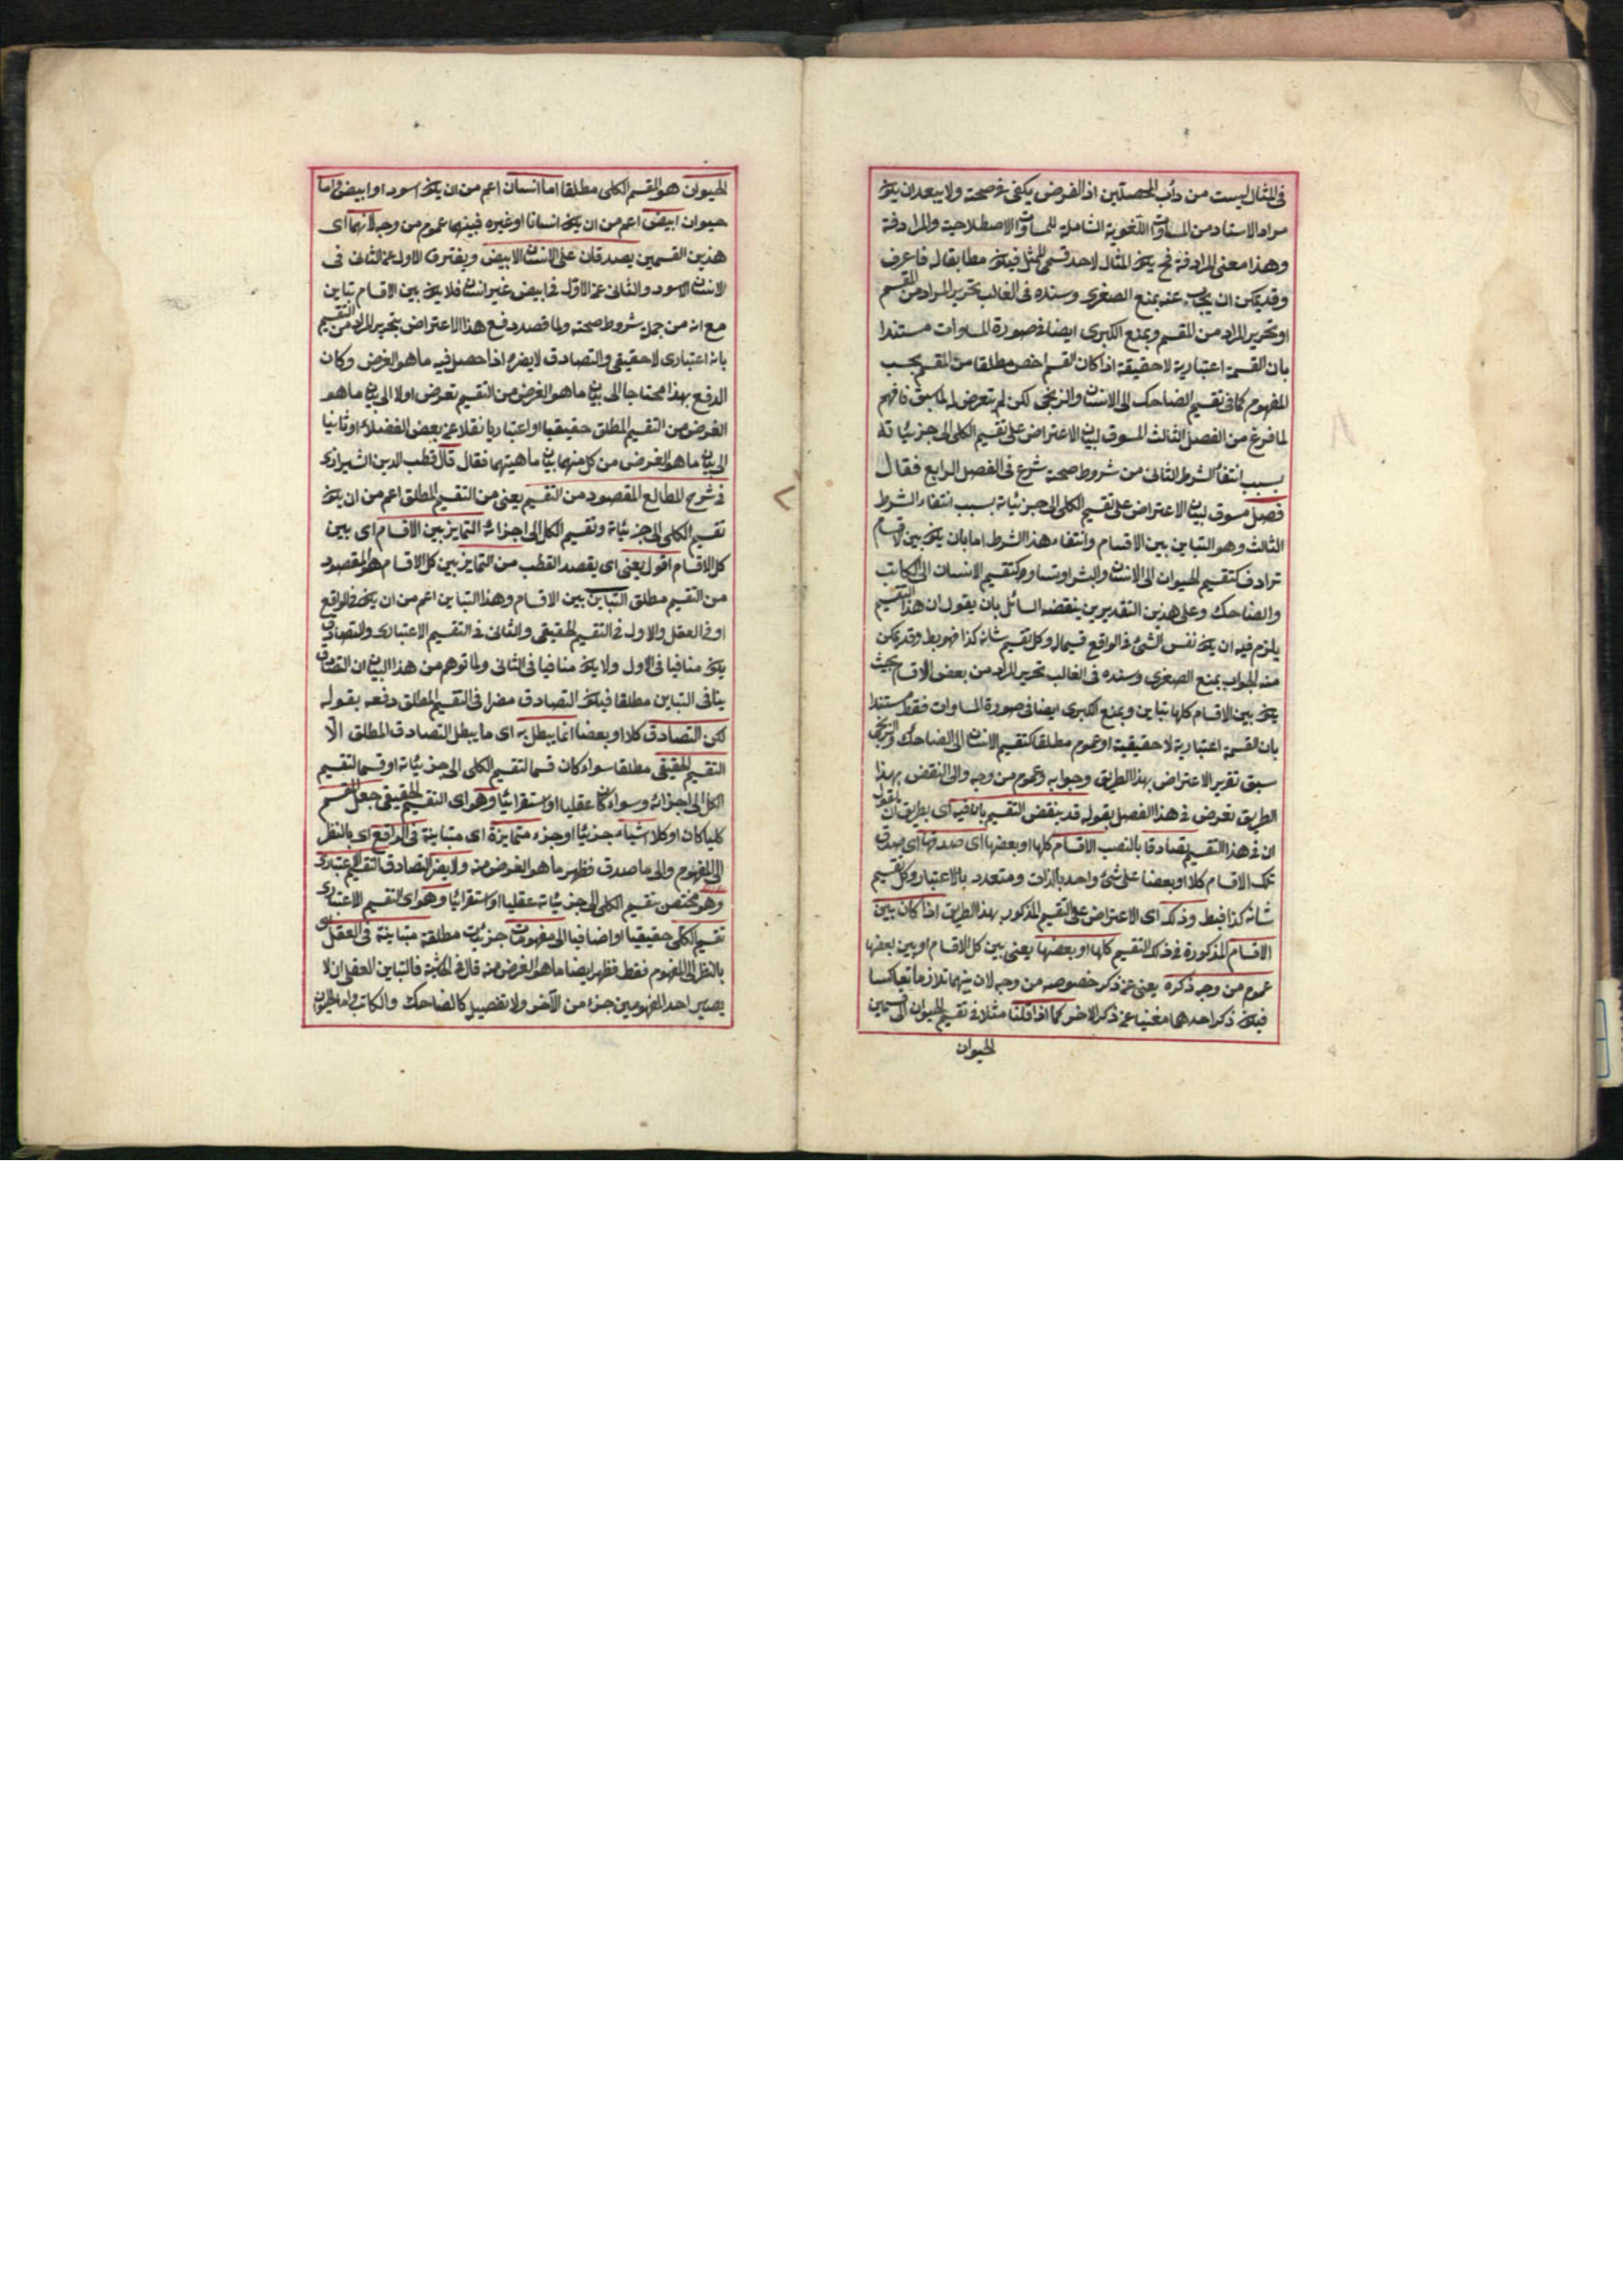 فى المثال ليست من دأب المحصلين اذ الفرض يكفى فى صحته ولا يبعد ان يكون
مراد الاستاد من المساوات اللغوية الشاملة للمساوات الاصطلاحية والمرادفة
وهذا معنى المرادفة فح يكون المثال لاحد قسمى الممثل فيكون مطابقا له فاعرف
وقد يمكن ان يجاب عنه بمنع الصغرى وسنده فى الغالب تحرير المراد من المقسم
او تحرير المراد من المقسم وبمنع الكبرى ايضا فى صورة المساوات مستندا
بان القسمة اعتبارية لا حقيقية اذا كان القسم اخص مطلقا من المقسم بحسب
المفهوم كما فى تقسيم الضاحك الى الانسان والزنجى لكن لم يتعرض له لما سبق فافهم
لما فرغ من الفصل الثالث المسوق لبيان الاعتراض على تقسيم الكلى الى جزئياته
بسبب انتفاء الشرط الثانى من شروط صحته شرع فى الفصل الرابع فقال
فصل مسوق لبيان الاعتراض على تقسيم الكلى الى جزئياته بسبب انتفاء الشرط
الثالث وهو التباين بين الاقسام وانتفاء هذا الشرط اما بان يكون بين الاقسام
ترادف كتقسيم الحيوان الى الانسان والبشر او تساو كتقسيم الانسان الى الكاتب
والضاحك وعلى هذين التقديرين ينقضه السائل بان يقول ان هذا التقسيم
يلزم فيه ان يكون نفس الشئ فى الواقع قسيما له وكل تقسيم شانه كذا فهو بط وقد يمكن
منه الجواب بمنع الصغرى وسنده فى الغالب تحرير المراد من بعض الاقسام بحيث
يكون بين الاقسام كلها تباين وبمنع الكبرى ايضا فى صورة المساوات فقط مستندا
بان القسمة اعتبارية لا حقيقية او عموم مطلقا كتقسيم الانسان الى الضاحك والزنجى
سبق تقرير الاعتراض بهذا الطريق وجوابه وعموم من وجه والى النقض بهذا
الطريق تعرض فى هذا الفصل بقوله قد ينقض التقسيم بان فيه اى بطريق ان يقول
ان فى هذا التقسيم تصادقا بالنصب الاقسام كلها او بعضها اى صدقها اى يصدق
تلك الاقسام كلا او بعضا على شئ واحد بالذات ومتعدد بالاعتبار وكل تقسيم
شانه كذا فبط وذلك اى الاعتراض على التقسيم المذكور بهذا الطريق اذا كان بين
الاقسام المذكورة فى ذلك التقسيم كلها او بعضها يعنى بين كل الاقسام او بين بعضها
عموم من وجه ذكره يعنى عن ذكر خصوصه من وجه لان بينهما تلازما تعاكسا
فيكون ذكر احدهما مغنيا عن ذكر الاخر كما اذا قلنا مثلا فى تقسيم الحيوان الى قسمين
الحيوان
الحيوان هو المقسم الكلى مطلقا اما انسان اعم من ان يكون اسود او ابيض واما
حيوان ابيض اعم من ان يكون انسانا او غيره فبينهما عموم من وجه لانهما اى
هذين القسمين يصدقان على الانسان الابيض ويفترق الاول عن الثانى فى
الانسان الاسود والثانى عن الاول فى ابيض غير انسان فلا يكون بين الاقسام تباين
مع انه من جملة شروط صحته ولما قصد دفع هذا الاعتراض بتحرير المراد من التقسيم
بانه اعتبارى لا حقيقى والتصادق لا يضره اذا حصل فيه ما هو الغرض وكان
الدفع بهذا محتاجا الى بيان ما هو الغرض من التقسيم تعرض اولا الى بيان ما هو
الغرض من التقسيم المطلق حقيقيا او اعتباريا نقلا عن بعض الفضلاء وثانيا
الى بيان ما هو الغرض من كل منهما بيان ماهيتهما فقال قال قطب الدين الشيرازى
فى شرح المطالع المقصود من التقسيم يعنى من التقسيم المطلق اعم من ان يكون
تقسيم الكلى الى جزئياته وتقسيم الكل الى اجزائه التمايز بين الاقسام اى بين
كل الاقسام اقول يعنى اى يقصد القطب من التمايز بين كل الاقسام هو المقصود
من التقسيم مطلق التباين بين الاقسام وهذا التباين اعم من ان يكون فى الواقع
او فى العقل والاول فى التقسيم الحقيقى والثانى فى التقسيم الاعتبارى والتصادق
يكون منافيا فى الاول ولا يكون منافيا فى الثانى ولما توهم من هذا البيان ان التصادق
ينافى التباين مطلقا فيكون التصادق مضرا فى التقسيم المطلق دفعه بقوله
لكن التصادق كلا او بعضا انما يبطل به اى ما يبطل التصادق المطلق الا
التقسيم الحقيقى مطلقا سواء كان قسما لتقسيم الكلى الى جزئياته او قسما لتقسيم
الكل الى اجزائه وسواء كان عقليا او استقرائيا وهو اى التقسيم الحقيقى جعل المقسم
كليا كان او كلا اشياء جزئيا او جزء متمايزة اى متباينة فى الواقع اى بالنظر
الى المفهوم والى ما صدق فظهر ما هو الغرض منه ولا يضر التصادق التقسيم الاعتبارى
وهو مختص بتقسيم الكلى الى جزئياته عقليا او استقرائيا وهو اى التقسيم الاعتبارى
تقسيم الكلى حقيقيا او اضافيا الى مفهومات جزئيات مطلقة متباينة فى العقل اى
بالنظر الى المفهوم فقط فظهر ايضا ما هو الغرض منه قال فى الحاشية فالتباين العقلى ان لا
يصير احد المفهومين جزء من الآخر ولا تفصيل كالضاحك والكاتب